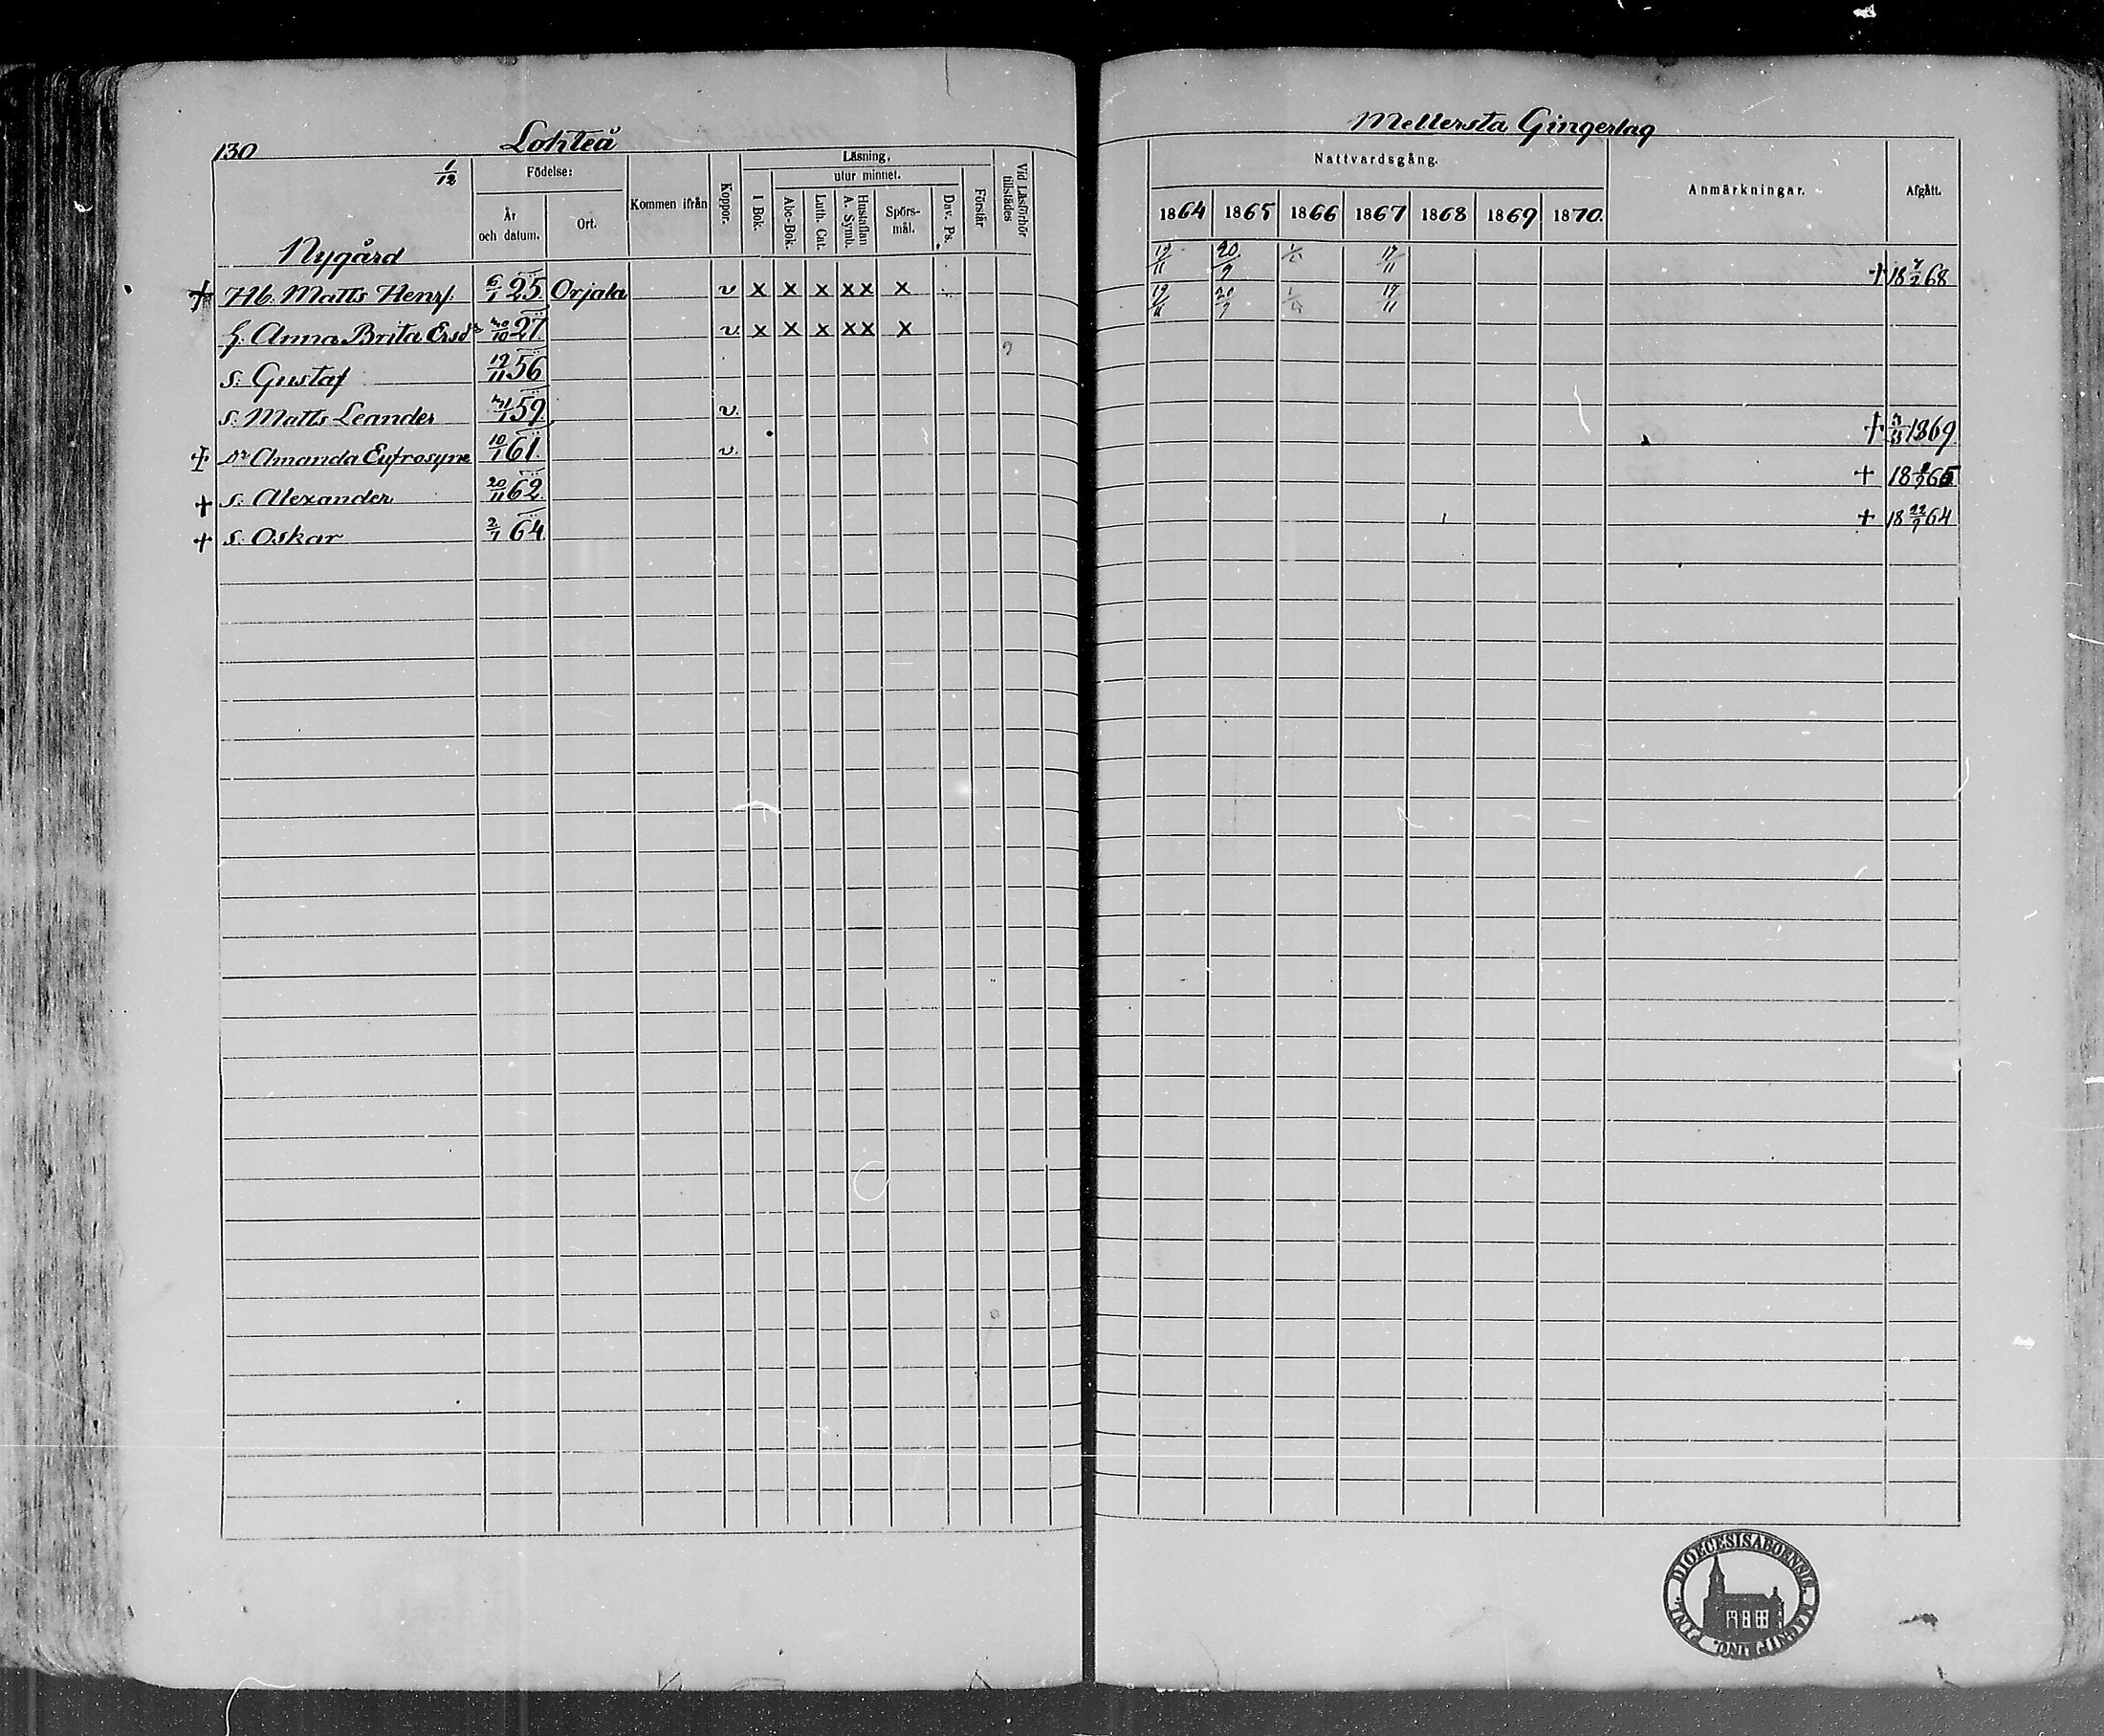 130 Lohteå
Mellersta Gingerlag
1/12
Födelse:
År och datum.
Ort.
Kommen ifrån
Koppor.
Läsning,
utur minnet.
I Bok.
Abc-Bok.
Luth. Cat.
Hustaflan A. Symb.
Spörs-mål.
Dav. Ps.
Förstår.
Vid Läsförhör tillstädes
Nattvardsgång.
1864 1865 1866 1867 1868 1869 1870.
Anmärkningar.
Afgått.
Nygård
+ Hb. Matts Henr. 6/1 25 Orjala v x x x xx x 19/11 20/9 17/11 + 18 2/68
h. Anna Brita Ersd:r 27. v. x x x xx x 19/11 17/11
s. Gustaf 19/11 56
s. Matts Leander 59. v.
+ Dr Amanda Eufrosyne 10/1 61. v. + 1869
+ s. Alexander 20/11 62 + 18 65
+ s. Oskar 2/7 64 + 18 22/7 64
DIOECESIS ABOENSIS